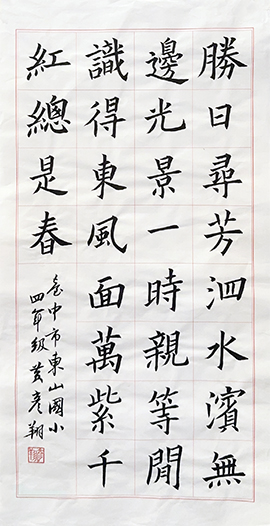 勝日尋芳泗水濱無
邊光景一時親等閒
識得東風面萬紫千
紅總是春
臺中市東山國小
四年級 黃彥翔